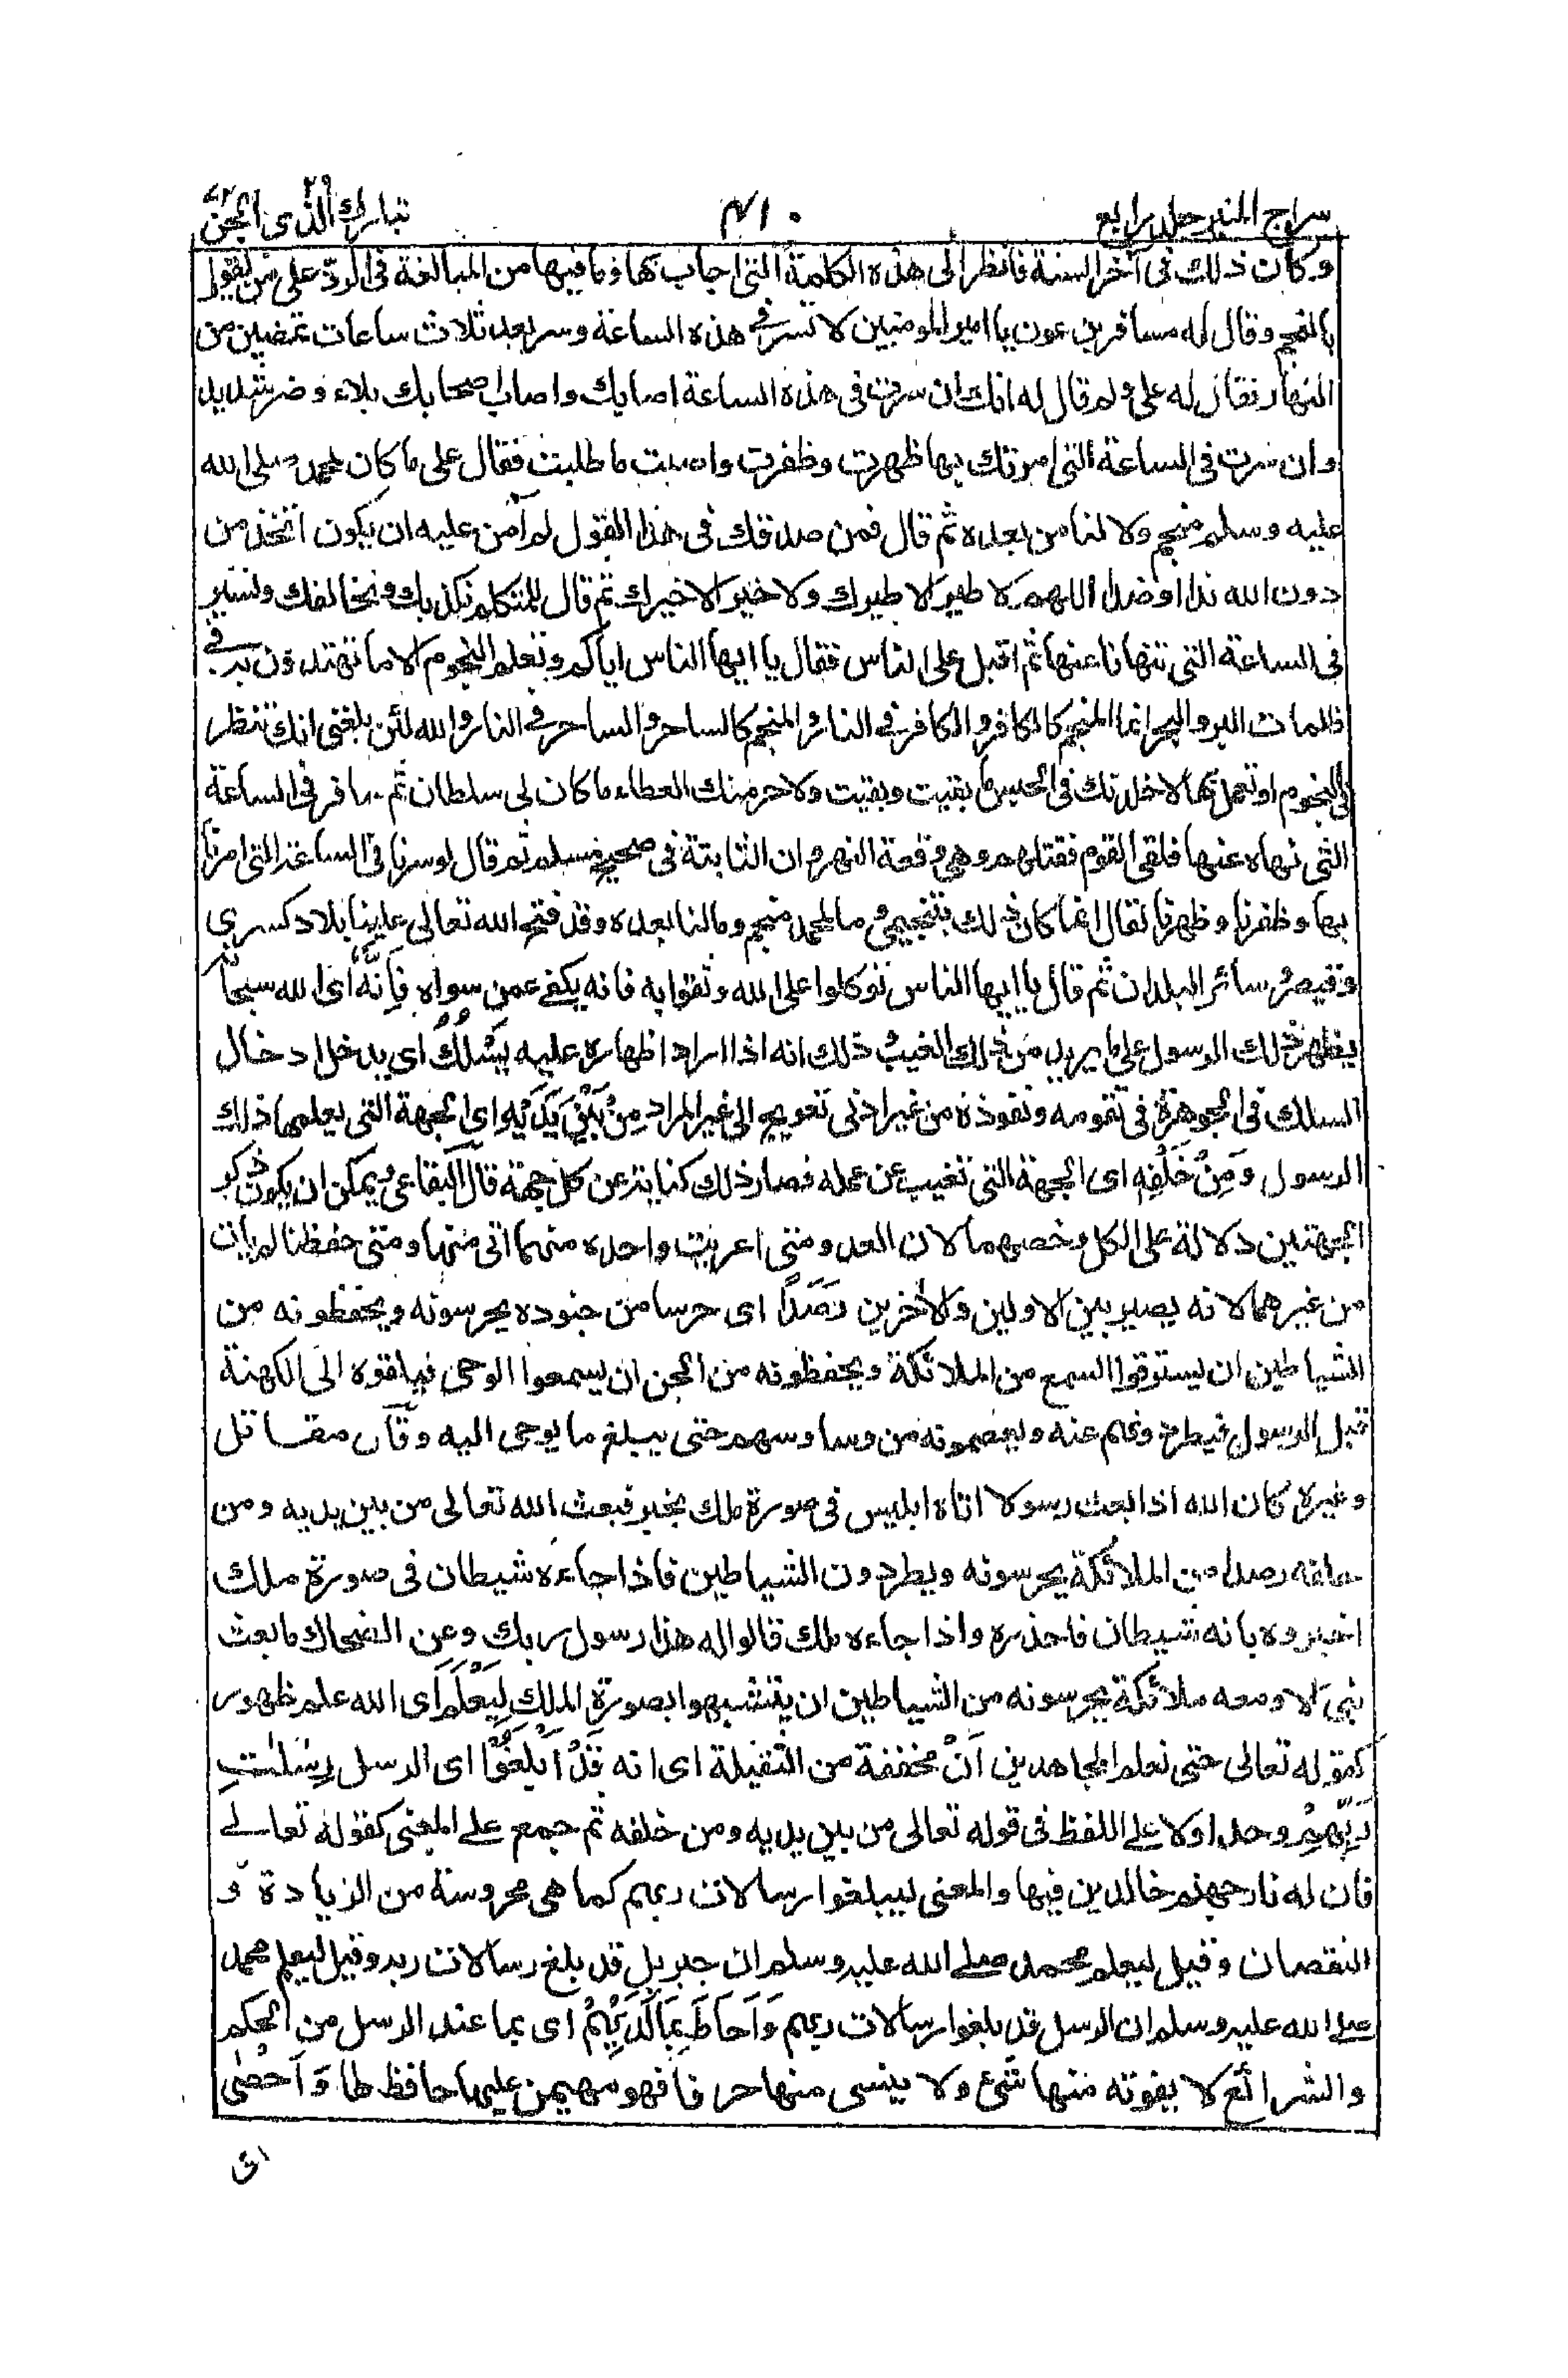 سراج المنير جلد رابع
٤١٠
تبارك الذى ٢٩ الجن ٧٢
وكان ذلك فى آخر السنة فانظر الى هذه الكلمة التى اجاب بها وما فيها من المبالغة فى الرد على من يقول
بالنجم وقال له مسافر بن عون يا امير المومنين لا تسر فى هذه الساعة وسر بعد ثلاث ساعات تمضين من
النهار فقال له على ولم قال له انك ان سرت فى هذه الساعة اصابك واصاب اصحابك بلاء وضر شديد
وان سرت فى الساعة التى امرتك بها ظهرت وظفرت واصبت ما طلبت فقال على ما كان لمحمد صلى الله
عليه وسلم منجم ولا لنا من بعده ثم قال فمن صدقك فى هذا القول لم آمن عليه ان يكون اتخذ من
دون الله ندا او ضدا اللهم لا طير الا طيرك ولا خير الا خيرك ثم قال للمتكلم نكذبك ونخالفك ونسير
فى الساعة التى تنهانا عنها ثم اقبل على الناس فقال يا ايها الناس اياكم وتعلم النجوم الا ما تهتدون به فى
ظلمات البر والبحر انما المنجم كالكافر والكافر فى النار والمنجم كالساحر والساحر فى النار والله لئن بلغنى انك تنظر
فى النجوم او تعمل بها لاخلدنك فى الحبس ما بقيت وبقيت ولاحرمنك العطاء ما كان لى سلطان ثم سافر فى الساعة
التى نهاه عنها فلقى القوم فقتلهم وهى وقعة النهروان الثابتة فى صحيح مسلم ثم قال لو سرنا فى الساعة التى امرنا
بها وظفرنا وظهرنا لقال انما كان ذلك بتنجيمى وما لمحمد منجم وما لنا بعده وقد فتح الله تعالى علينا بلاد كسرى
وقيصر وسائر البلدان ثم قال يا ايها الناس توكلوا على الله وثقوا به فانه يكفى عمن سواه فَاِنَّهٗ اى الله سبحانه
يظهر ذلك الرسول على ما يريد من ذلك الغيب وذلك انه اذا اراد اظهاره عليه يَسْلُكُ اى يدخل ادخال
السلك فى الجوهرة فى تقومه ونفوذه من غير ادنى تعويج الى غير المراد مِنْۢ بَيْنِ يَدَيْهِ اى الجهة التى يعلمها ذلك
الرسول وَمِنْ خَلْفِهٖ اى الجهة التى تغيب عن عمله فصار ذلك كناية عن كل جهة قال البقاعى ويمكن ان يكون ذكر
الجهتين دلالة على الكل وخصهما لان العدو متى اعريت واحدة منهما اتى منها ومتى حفظتا لم يأت
من غيرهما لانه يصير بين الاولين والآخرين رَصَدًا اى حرسا من جنوده يحرسونه ويحفظونه من
الشياطين ان يسترقوا السمع من الملائكة ويحفظونه من الجن ان يسمعوا الوحى فيلقوه الى الكهنة
قبل الرسول فيطردونهم عنه ويعصمونه من وساوسهم حتى يبلغ ما يوحى اليه وقال مقاتل
وغيره كان الله اذا بعث رسولا اتاه ابليس فى صورة ملك يخبر فبعث الله تعالى من بين يديه ومن
خلفه رصدا من الملائكة يحرسونه ويطردون الشياطين فاذا جاءه شيطان فى صورة ملك
اخبروه بانه شيطان فاحذره واذا جاءه ملك قالوا له هذا رسول ربك وعن الضحاك ما بعث
نبى الا ومعه ملائكة يحرسونه من الشياطين ان يتشبهوا بصورة الملك لِيَعْلَمَ اى الله علم ظهور
كقوله تعالى حتى نعلم المجاهدين اَنْ مخففة من الثقيلة اى انه قَدْ اَبْلَغُوْا اى الرسل رِسٰلٰتِ
رَبِّهِمْ وحد اولا على اللفظ فى قوله تعالى من بين يديه ومن خلفه ثم جمع على المعنى كقوله تعالى
فان له نار جهنم خالدين فيها والمعنى ليبلغوا رسالات ربهم كما هى محروسة من الزيادة و
النقصان وقيل ليعلم محمد صلى الله عليه وسلم ان جبريل قد بلغ رسالات ربه وقيل ليعلم محمد
صلى الله عليه وسلم ان الرسل قد بلغوا رسالات ربهم وَاَحَاطَ بِمَا لَدَيْهِمْ اى بما عند الرسل من الحكم
والشرائع لا يفوته منها شئ ولا ينسى منها حرفا فهو مهيمن عليها حافظ لها وَاَحْصٰى
اى